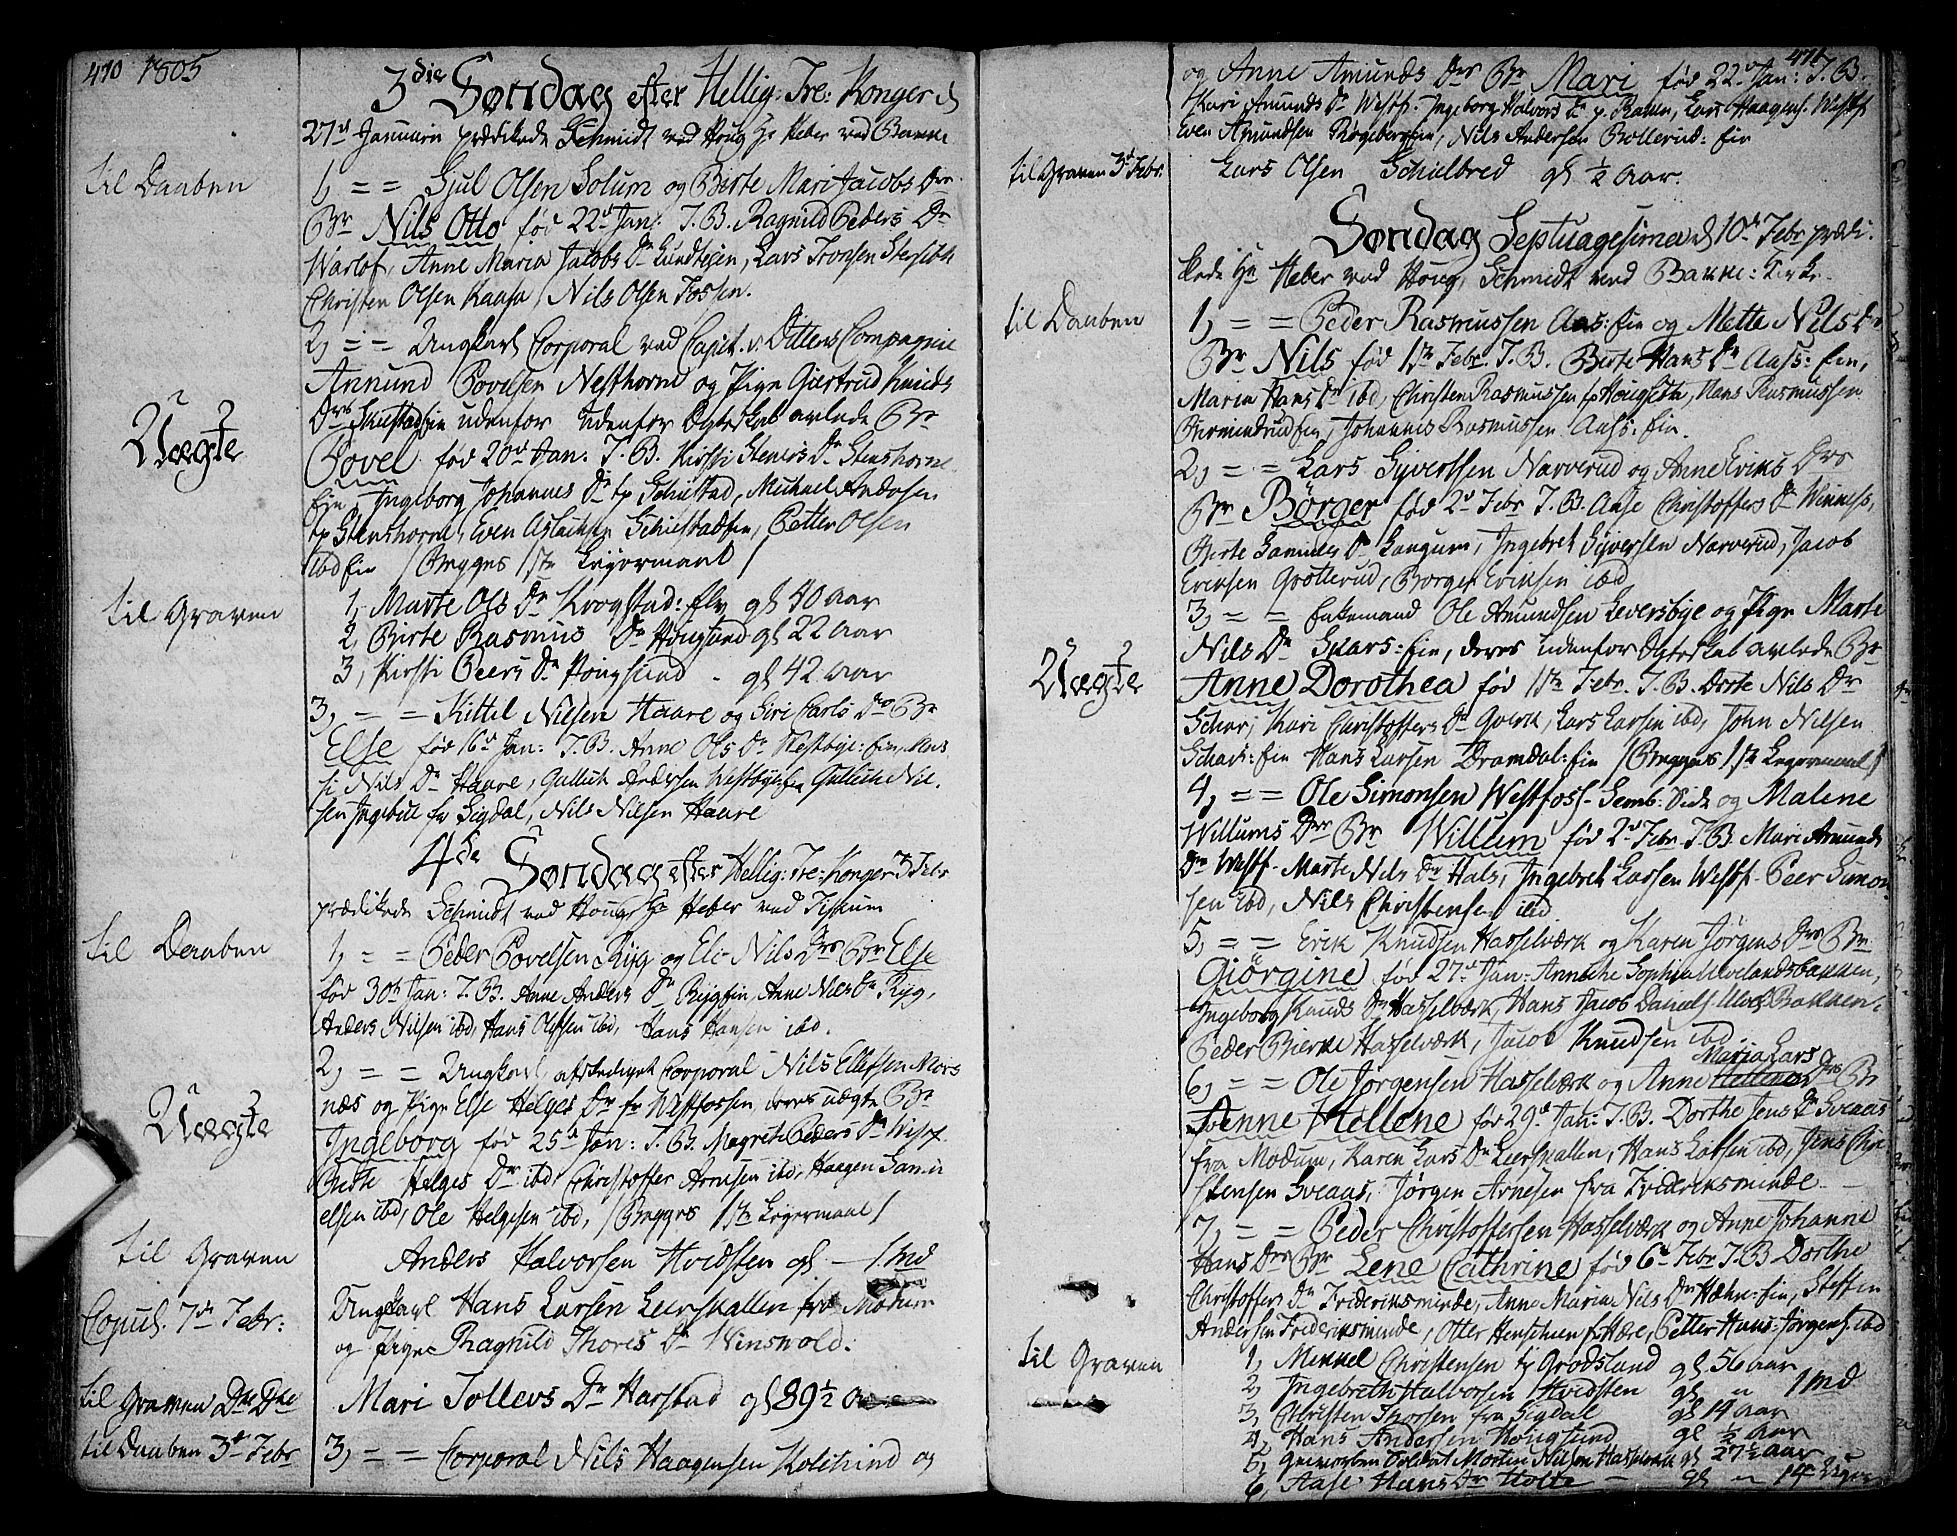 470 1805
3die Søndag efter Hellig: Tre: Konger d
27d Januarii prædikede Schmidt ved Houg Hr Heber ved Bakke
til Daaben
1, = = Gjul Olsen Solum og Birte Mari Jacobs Drs
Br Nils Otto fød 22d Jan: T. B. Ragnild Peders Dr
Warlof, Anne Maria Jacobs Dr Lundtejen, Lars Tronsen
Christen Olsen Kaasa, Nils Olsen Fossen.
2, = = Ungkarl Corporal ved Capit. v: Dittens Compagnie
Annund Povelsen Nesthorne og Pige Giertrud Knuds
Drs Skiestad ein udenfor udenfor Egteskab avlede Br
Uægte
Povel fød 20d Jan: T. B. Kirsti Steners Dr Stenshorne
Ein, Ingeborg Johannes Dr p Schiestad, Michael Andersen
p Stenshorne, Even Aslachsen Schiestad ein, Petter Olsen
ibd ein / Begges 1ste Leyermaal /
til Graven
1, Marte Ols Dr Krogstad: flv gl 40 aar
2, Birte Rasmus Dr Hougsund gl 22 aar
3, Kirsti Peers Dr Hougsund - gl 42 aar
3, = = Kittel Nilsen Haare og Siri Carls Drs Br
Else fød 16d Jan: T. B. Anne Ols Dr Westbye: ein, Mar
si Nils Dr Haare, Gullich Andersen Westbye: ein Gullich Nil
sen Ingebill fr Sigdal, Nils Nilsen Haare
4de Søndag efter Hellig: Tre: Konger 3 Febr
prædikede Schmidt ved Houg, Hr Heber ved Fiskum
til Daaben
1, = = Peder Povelsen Ryg og Eli Nils Drs Br Else
fød 30te Jan: T. B. Anne Anders Dr Ryg ein, Anne Nils Dr Ryg,
Anders Nilsen ibd, Hans Olsen ibd, Hans Hansen ibd.
2, = = Ungkarl afskediget Corporal Nils Ellefsen Mors
næs og Pige Else Helges Dr fr Westfossen deres uægte Br
Uægte
Ingeborg fød 25d Jan: T. B. Magrete Peders Dr Westf.
Birte Helges Dr ibd, Christoffer Arnesen ibd, Haagen Sam u
elsen ibd, Ole Helgesen ibd, / Begges 1ste Leyermaal /
til Graven
Anders Halvorsen Hvidsten gl - 1 Md
Copul. 7de Febr:
Ungkarl Hans Larsen Leerskallen fra Modum
og Pige Ragnild Thores Dr Winsvold.
til Graven Dte Dte
Mari Tollevs Dr Harstad gl 89½
til Daaben 3d Febr
3, = = Corporal Nils Haagensen Kolstind og
471
og Anne Amunds Drs Br Mari fød 22d Jan: T. B.
Kari Amunds Dr Westf. Ingeborg Halvors Dr p Ramm, Lars Haagens. Westf
Even Amundsen Rogeberg ein, Nils Andersen Bollerud: ein
til Graven 3d Febr.
Lars Olsen Schielbred gl ½ aar.
Søndag Septuagesima d 10d Febr prædi.
kede Hr Heber ved Houg, Schmidt ved Bakke: Kirke.
til Daaben
1, = = Peder Rasmussen Aas: ein og Mette Nils Drs
Br Nils fød 1ste Febr. T. B. Birte Hans Dr Aass: Ein,
Maria Hans Dr ibd, Christen Rasmussen p Hougseth, Hans Rasmussen
Bermindrud ein, Johannes Rasmussen Aass: ein.
2, = = Lars Syvertsen Narverud og Anne Eriks Drs
Br Börger fød 2d Febr T. B. Aase Christoffers Dr Winnesb,
Birte Samuels Dr Langum, Ingebret Syversen Narverud, Jacob
Eriksen Grøtterud, Borger Eriksen ibd
3, = = Enkemand Ole Amundsen Leversbye og Pige Marte
Nils Dr Skars: ein, deres udenfor Egteskab avlede Br
Uægte
Anne Dorothea fød 1ste Febr. T. B. Dorte Nils Dr
Schar, Kari Christoffers Dr Qverk, Lars Larsen ibd, John Nilsen
Schar: ein Hans Larsen Dramdal: ein / Begges 1ste Legermaal /
4, = = Ole Simonsen Westfoss- Semb: Side og Malene
Willums Drs Br Willum fød 2d Febr. T. B. Mari Amunds
Dr Westf. Marte Nils Dr Hals, Ingebret Larsen Westf. Peer Simon
sen ibd, Nils Christensen ibd.
5, = = Erik Knudsen Hasselværk og Karen Jørgens Drs Br
Giörgine fød 27d Jan: Annethe Sophia Ulvelandsbakken,
Ingeborg Knuds Dr Hasselværk, Hans Jacob Daniels. Ulvel Bakken,
Peder Bierke Hasselværk, Jacob Knudsen ibd.
Maria Lars
6, = = Ole Jörgensen Hasselværk og Anne Hellena Drs Br
Anne Hellene fød 29d Jan: T. B. Dorthe Jens Dr Sveaas
fra Modum, Karen Lars Dr Leerskallen, Hans Larsen ibd, Jens Chri
stensen Sveaas, Jørgen Arnesen fra Frideriksminde.
7, = = Peder Christoffersen Hasselværk og Anne Johanne
Hans Drs Br Lene Cathrine fød 6te Febr. T. B. Dorthe
Christoffers Dr Frideriksminde, Anne Maria Nils Dr Hæhn: ein, Steffen
Andersen Frideriksminde, Otter Henschien p Hære, Petter Hans: Jørgens. ibd
til Graven
1, Mikkel Christensen p Grosland gl 56 aar
2, Ingebreth Halvorsen Hvidsten gl " 1 Md
3, Christen Thorsen fra Sigdal gl 14 aar
4, Hans Andersen Hougsund gl ½ aar
5, Soldat Morten Nilsen Hasselværk gl 27½ aar
6, Aase Hans Dr Holte - gl " 14 Uger